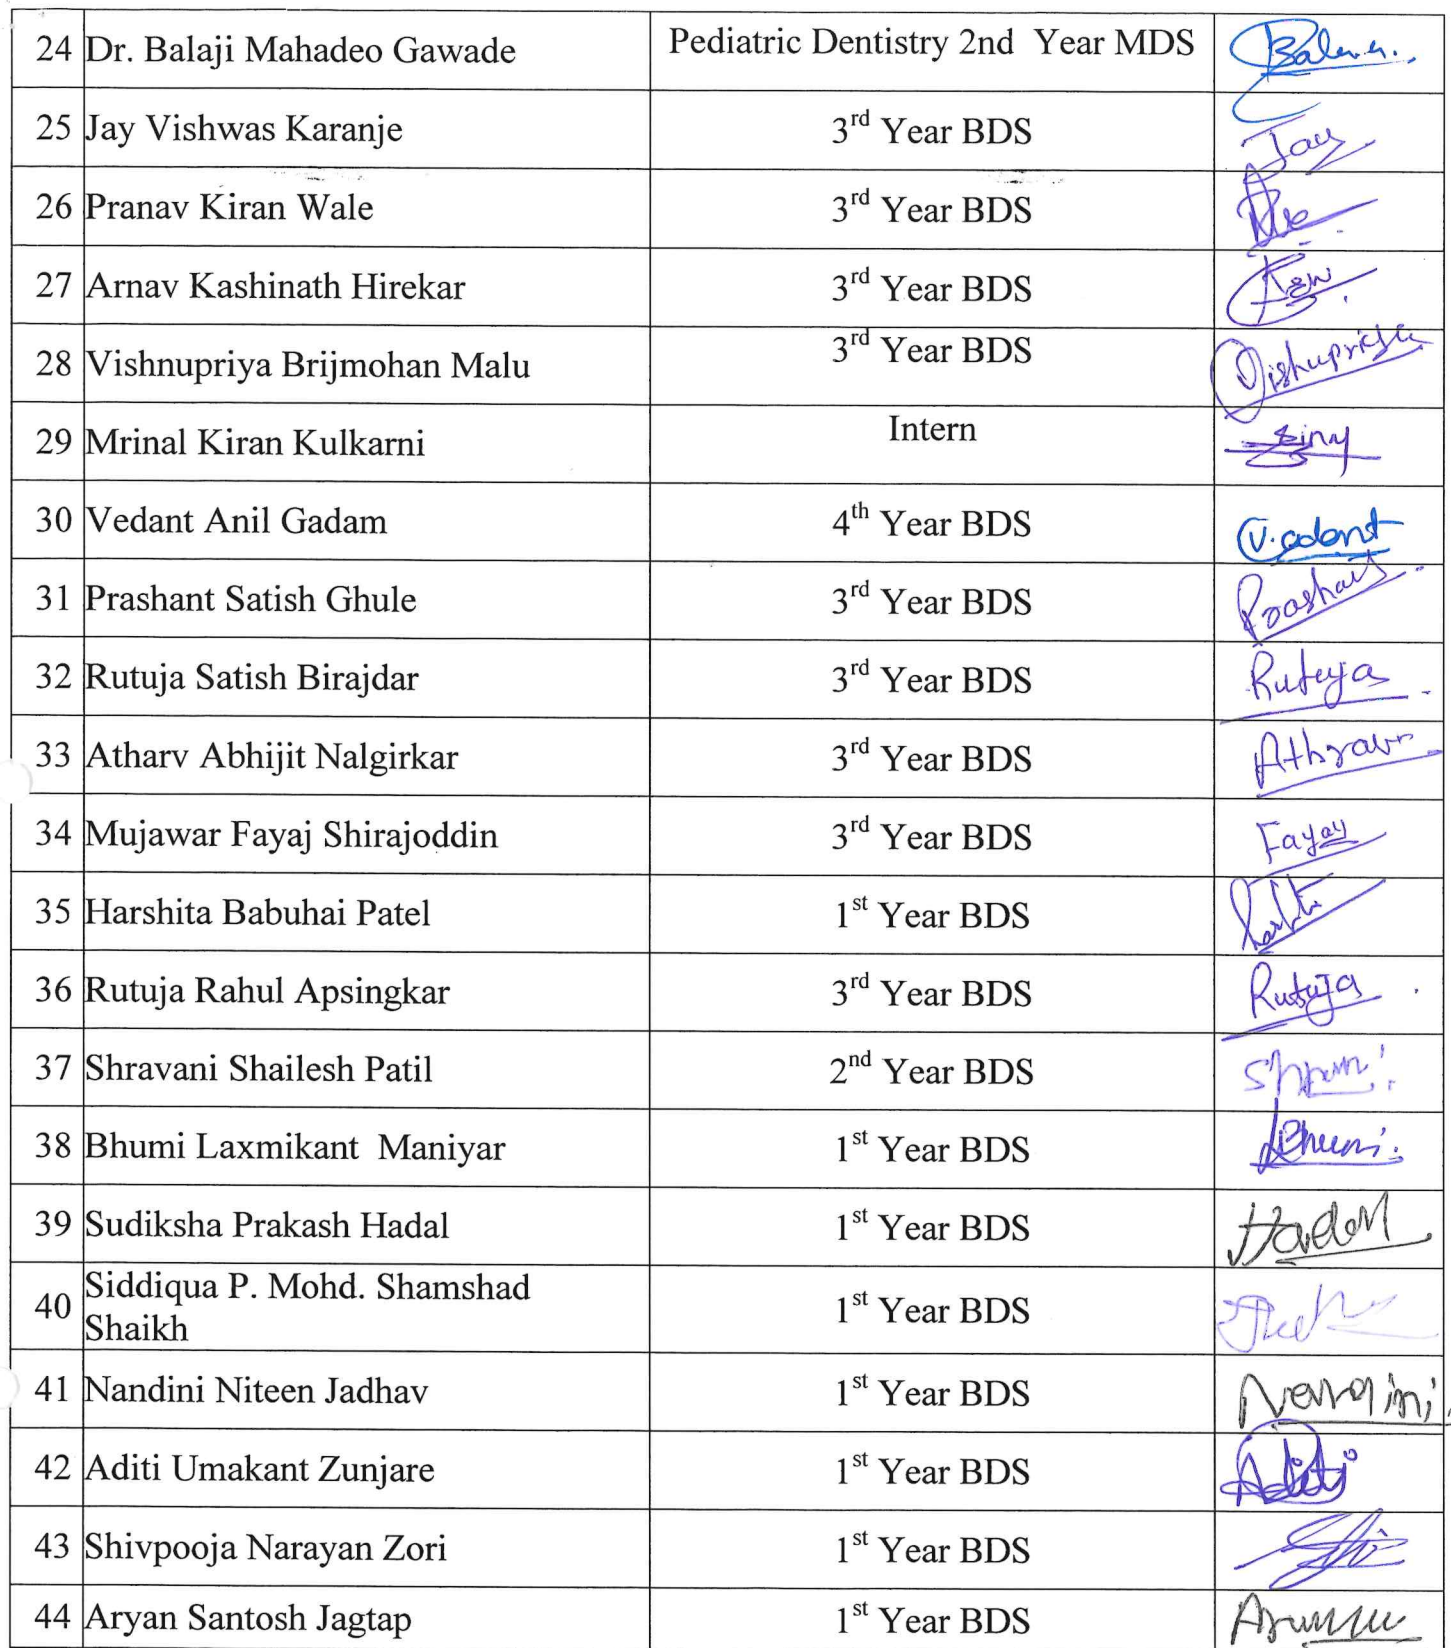 24 Dr. Balaji Mahadeo Gawade Pediatric Dentistry 2nd Year MDS
25 Jay Vishwas Karanje 3rd Year BDS Jay
26 Pranav Kiran Wale 3rd Year BDS
27 Arnav Kashinath Hirekar 3rd Year BDS
28 Vishnupriya Brijmohan Malu 3rd Year BDS
29 Mrinal Kiran Kulkarni Intern
30 Vedant Anil Gadam 4th Year BDS
31 Prashant Satish Ghule 3rd Year BDS
32 Rutuja Satish Birajdar 3rd Year BDS Rutuja
33 Atharv Abhijit Nalgirkar 3rd Year BDS
34 Mujawar Fayaj Shirajoddin 3rd Year BDS Fayaj
35 Harshita Babuhai Patel 1st Year BDS
36 Rutuja Rahul Apsingkar 3rd Year BDS Rutuja
37 Shravani Shailesh Patil 2nd Year BDS
38 Bhumi Laxmikant Maniyar 1st Year BDS Bhumi
39 Sudiksha Prakash Hadal 1st Year BDS Hadal
40 Siddiqua P. Mohd. Shamshad
Shaikh 1st Year BDS
41 Nandini Niteen Jadhav 1st Year BDS Nandini
42 Aditi Umakant Zunjare 1st Year BDS Aditi
43 Shivpooja Narayan Zori 1st Year BDS
44 Aryan Santosh Jagtap 1st Year BDS